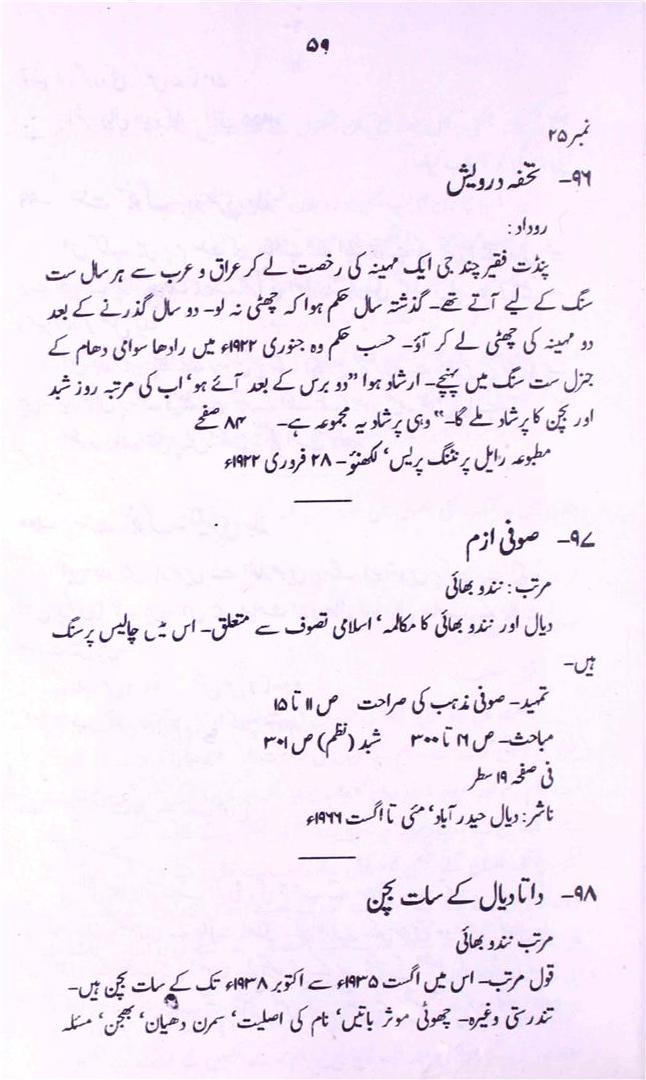 ۵۹
نمبر ۲۵
۹۶- تحفہ درویش
روداد :
پنڈت فقیر چند جی ایک مہینہ کی رخصت لے کر عراق و عرب سے ہر سال ست
سنگ کے لیے آتے تھے- گذشتہ سال حکم ہوا کہ چھٹی نہ لو- دو سال گذرنے کے بعد
دو مہینہ کی چھٹی لے کر آؤ- حسب حکم وہ جنوری ۱۹۲۲ء میں رادھا سوامی دھام کے
جنرل ست سنگ میں پہنچے- ارشاد ہوا ”دو برس کے بعد آئے ہو‘ اب کی مرتبہ روز شبد
اور بچن کا پرشاد ملے گا-“ وہی پرشاد یہ مجموعہ ہے- ۸۴ صفحے
مطبوعہ رایل پرنٹنگ پریس‘ لکھنؤ- ۲۸ فروری ۱۹۲۲ء
۹۷- صوفی ازم
مرتب : نندو بھائی
دیال اور نندو بھائی کا مکالمہ‘ اسلامی تصوف سے متعلق- اس میں چالیس پرسنگ
ہیں-
تمہید- صوفی مذہب کی صراحت ص ۱۱ تا ۱۵
مباحث- ص ۱۶ تا ۳۰۰ شبد (نظم) ص ۳۰۱
فی صفحہ ۱۹ سطر
ناشر : دیال حیدر آباد‘ مئی تا اگست ۱۹۶۶ء
۹۸- داتا دیال کے سات بچن
مرتب نندو بھائی
قول مرتب- اس میں اگست ۱۹۳۵ء سے اکتوبر ۱۹۳۸ء تک کے سات بچن ہیں-
تندرستی وغیرہ- چھوٹی موثر باتیں‘ نام کی اصلیت‘ سمرن دھیان‘ بھجن‘ مسئلہ